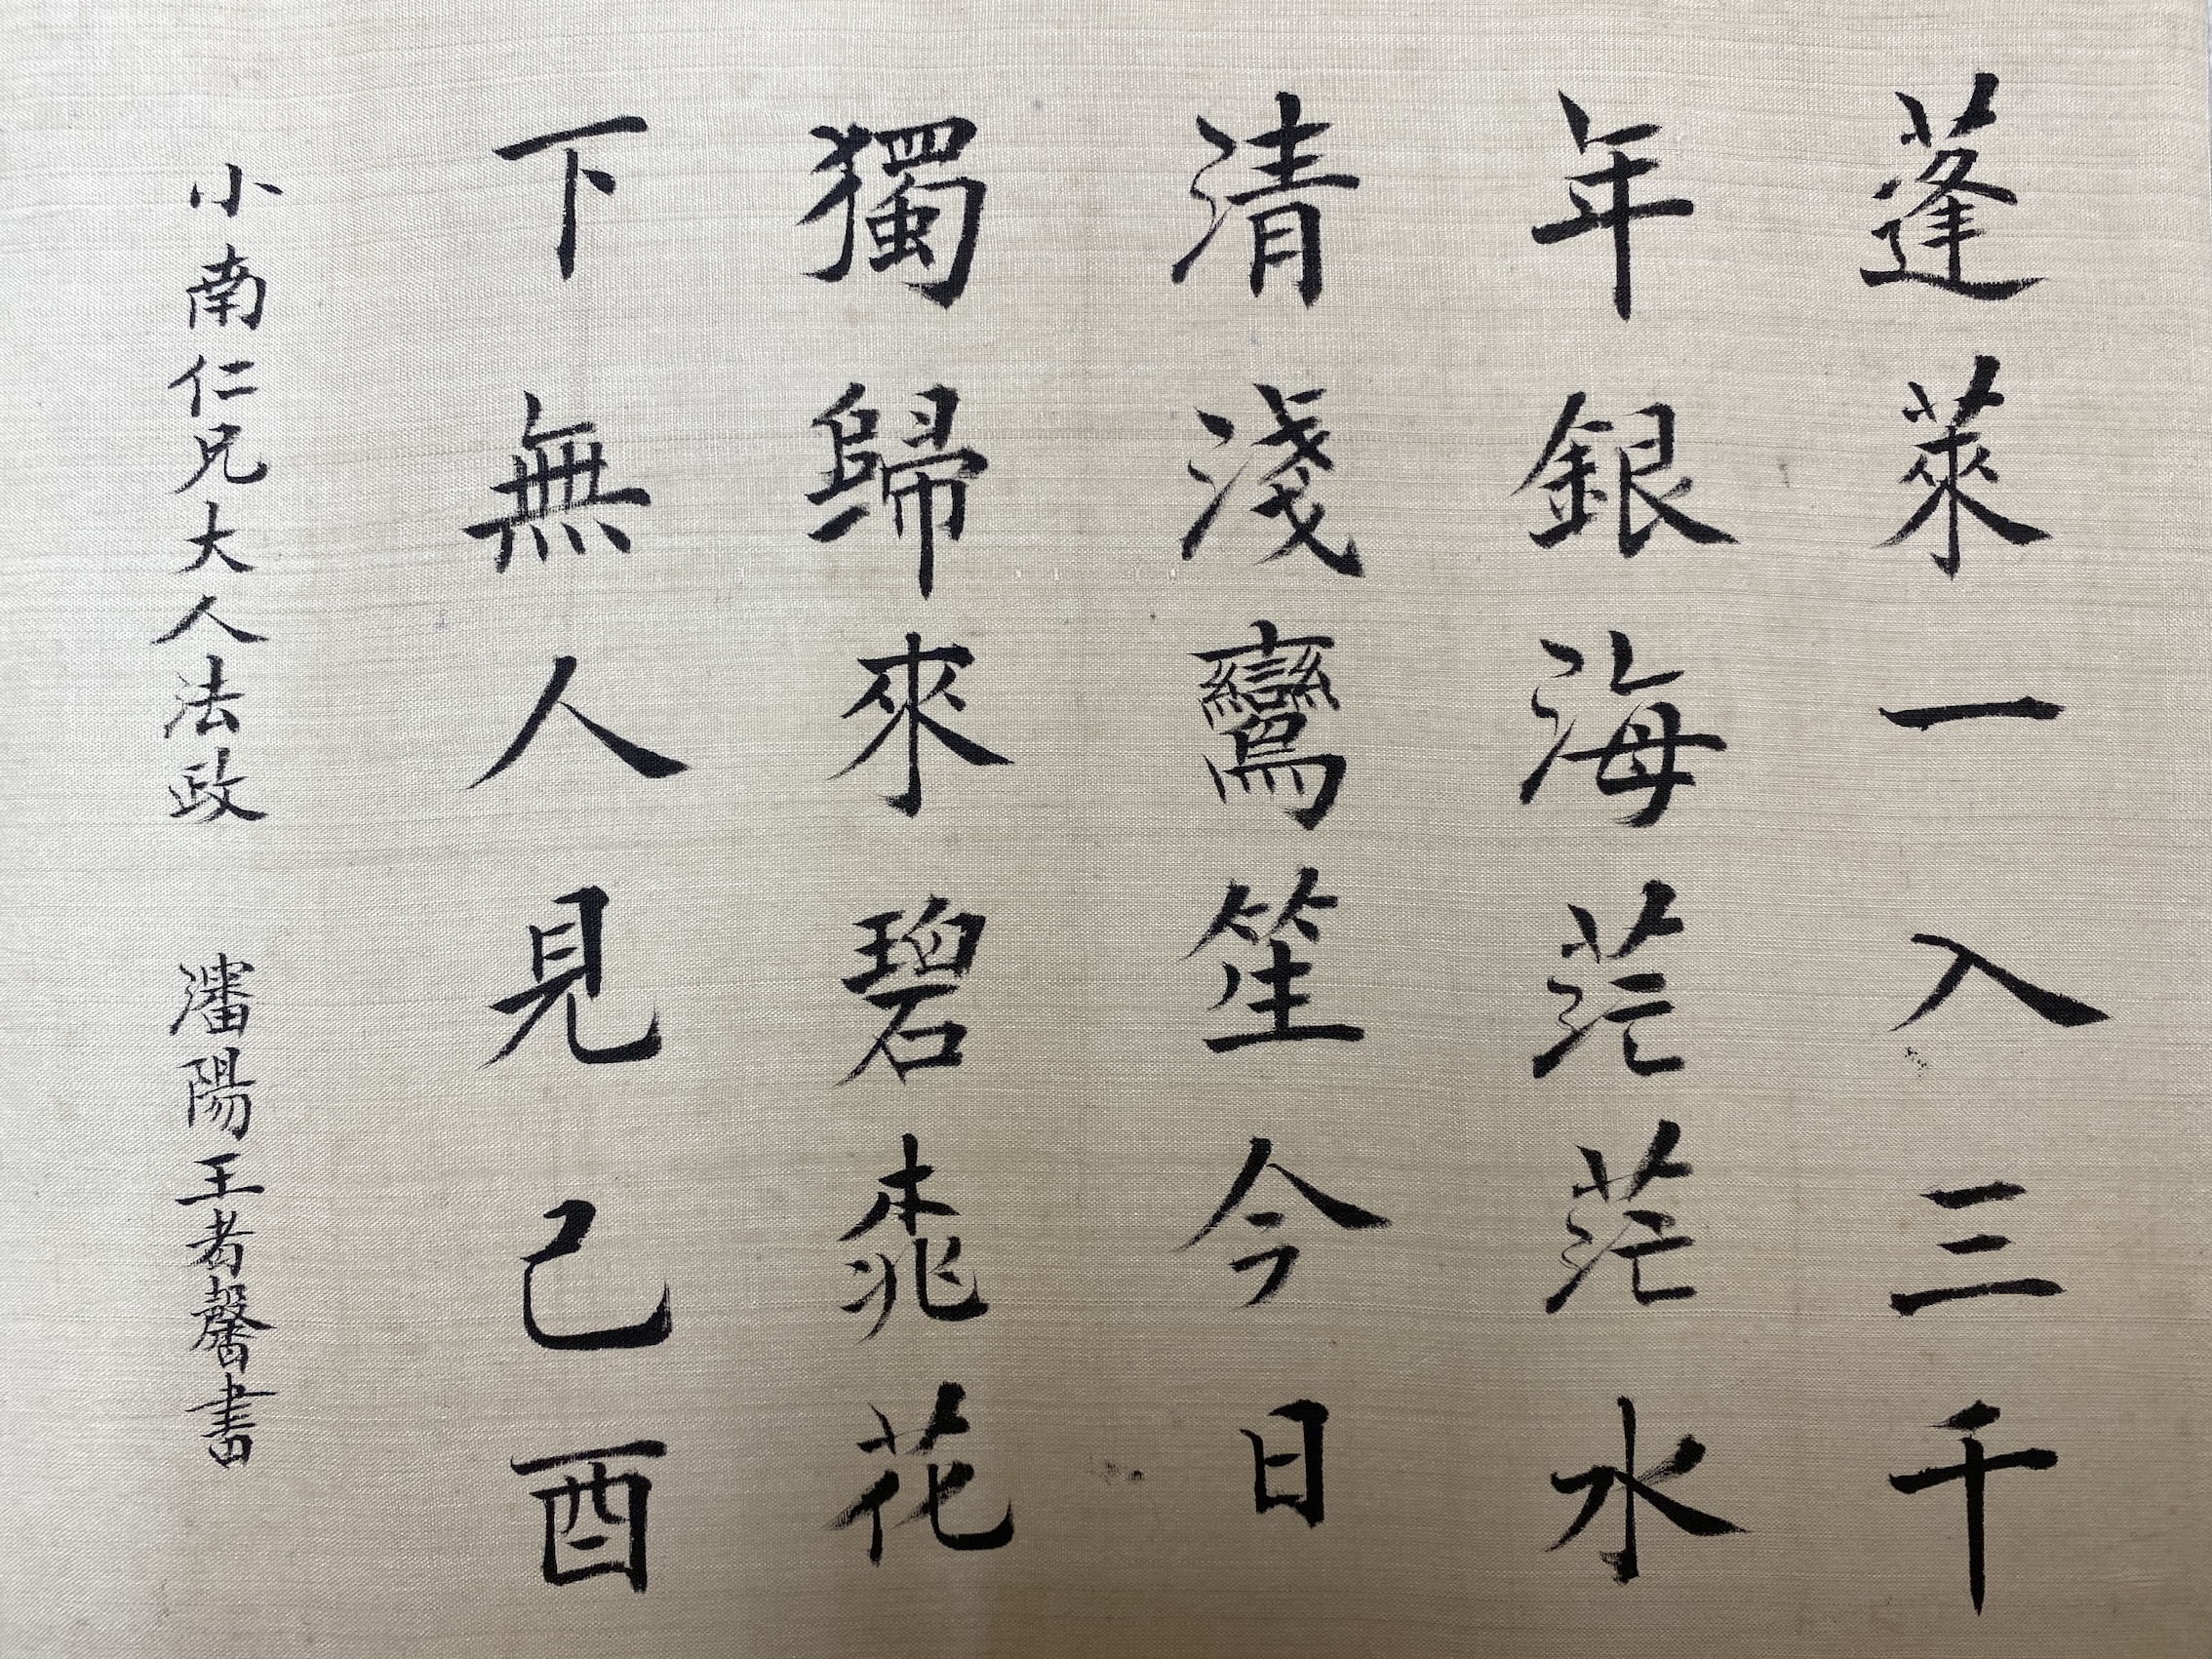 蓬萊一入三千
年銀海茫茫水
清淺鸞笙今日
獨歸來碧桃花
下無人見己酉
小南仁兄大人法政
瀋陽王者馨書